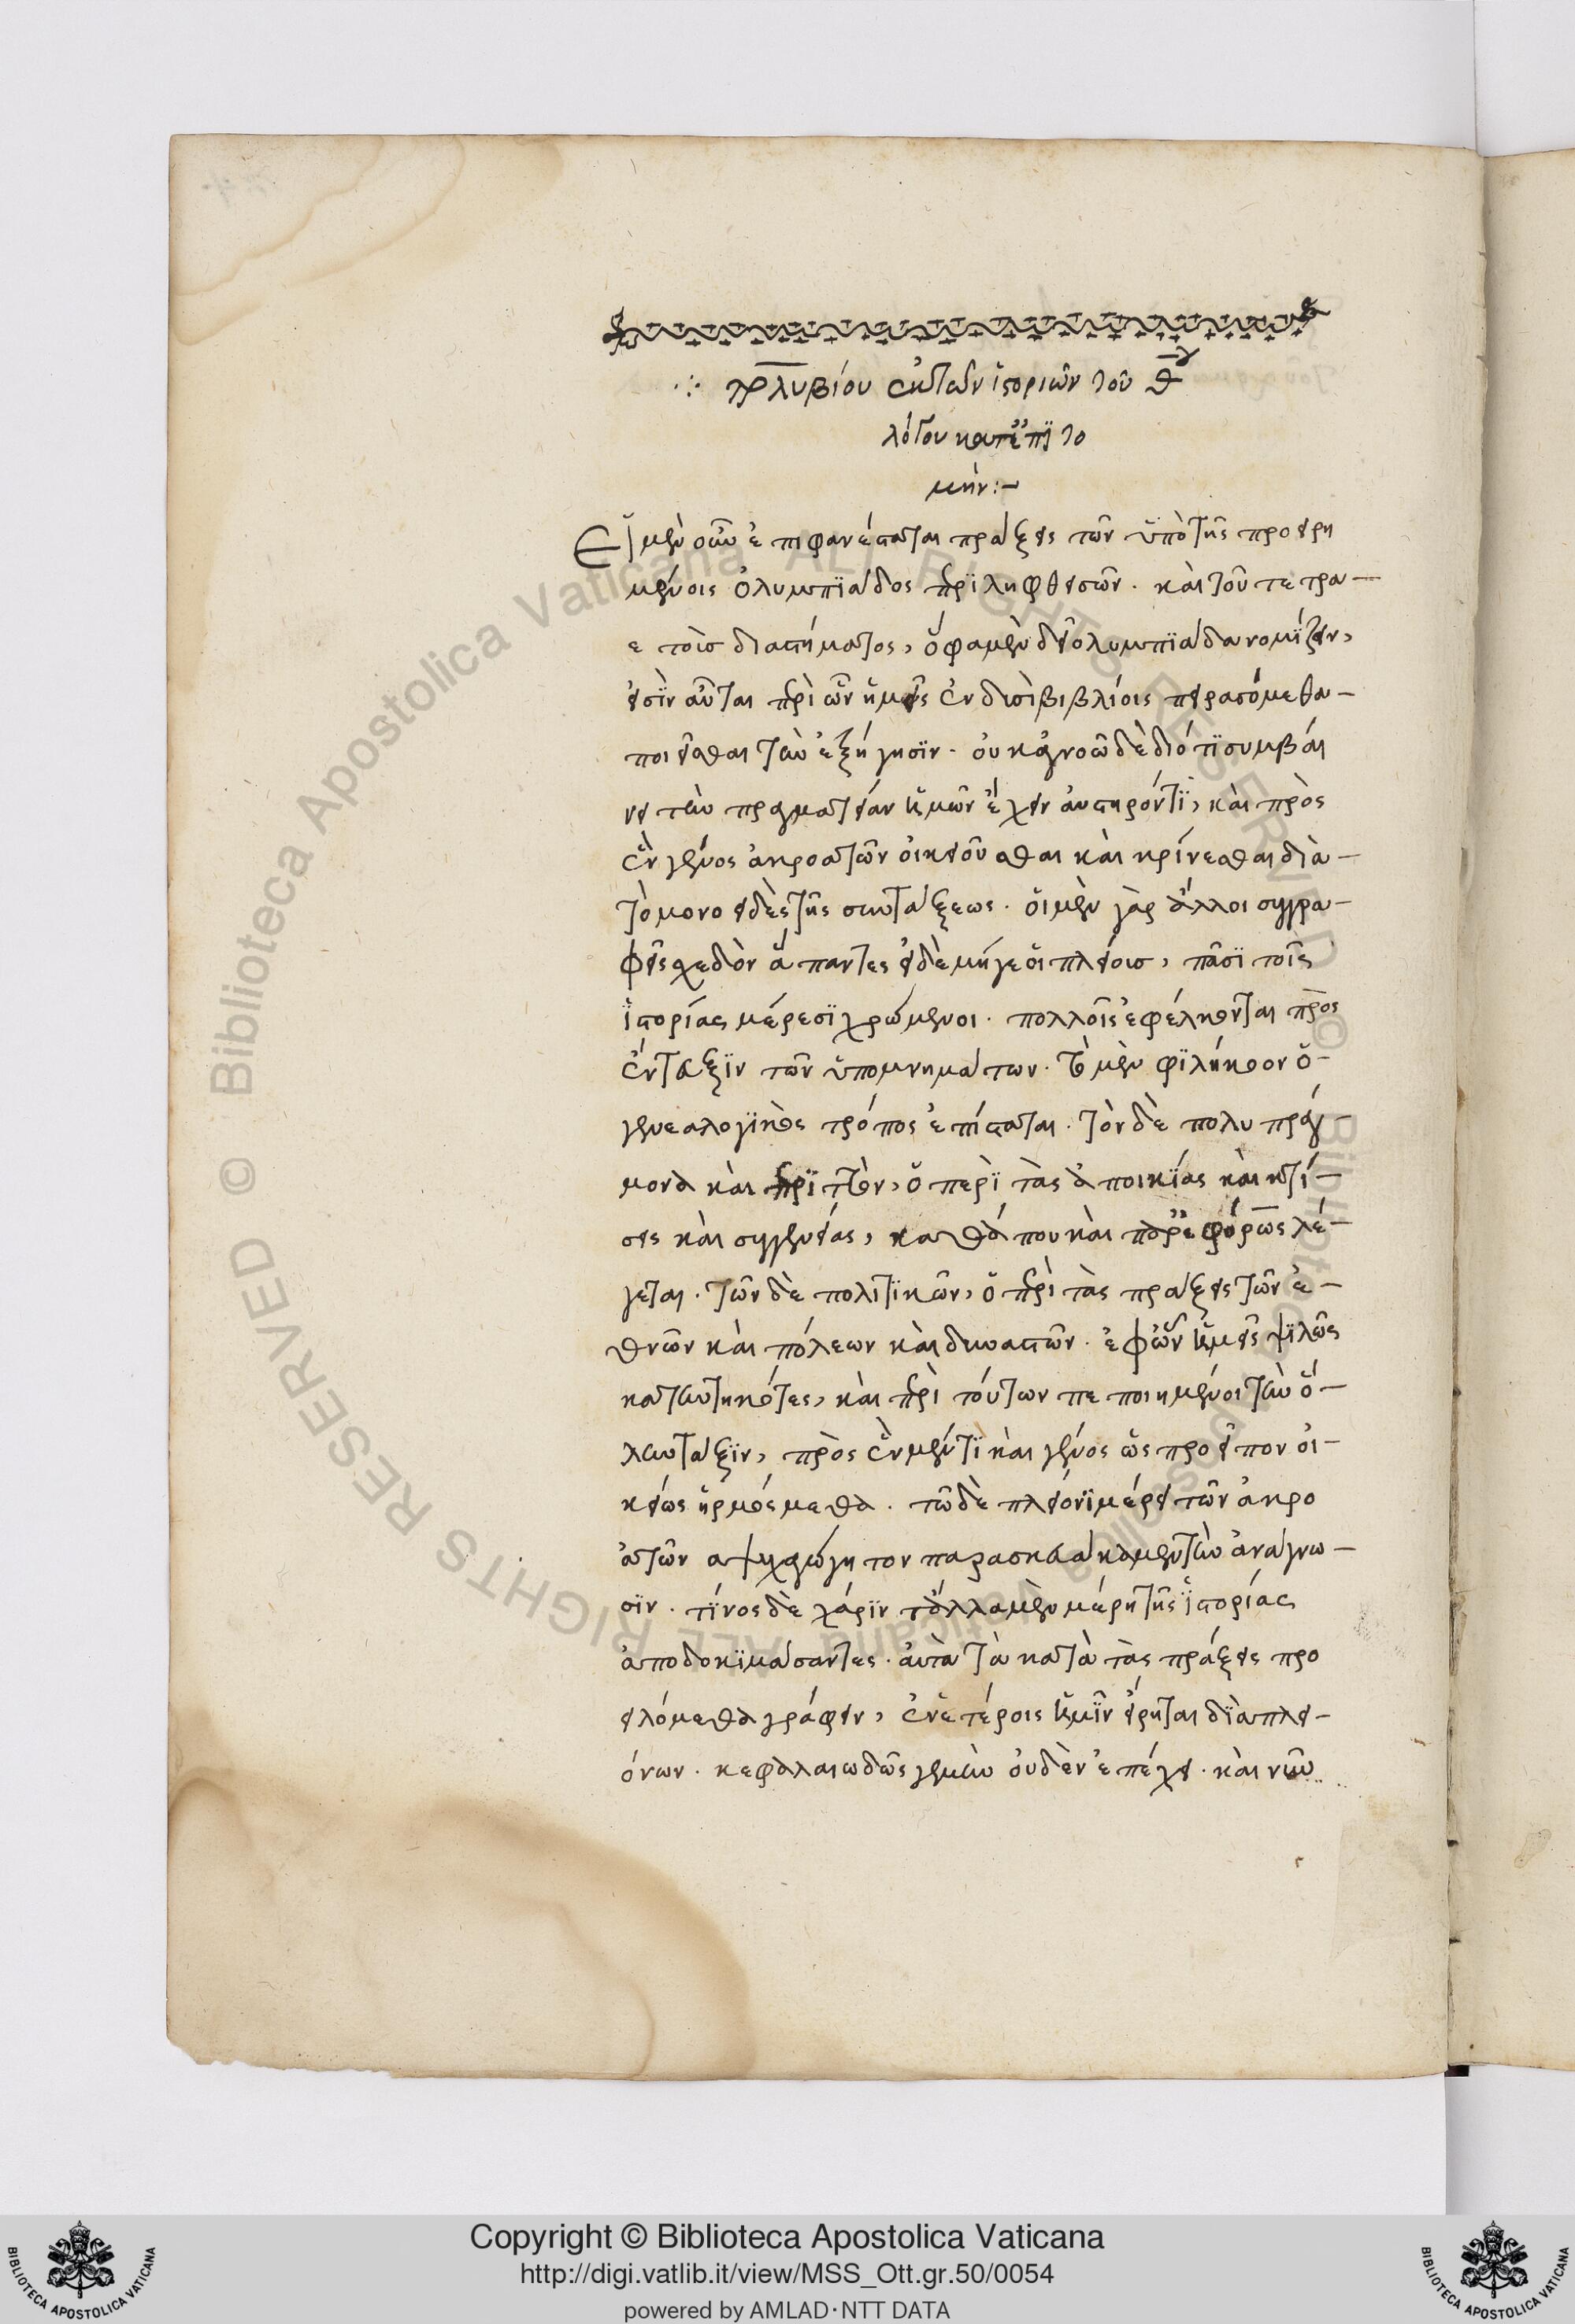 πολυβίου ἐκ τῶν ἱστοριῶν τοῦ θου
λόγου κατ' ἐπιτο
μήν:-
Εἱ μὲν οὖν ἐπιφανέσταται πράξεις τῶν ὑπὸ τῆς προειρη
μένοις ὀλυμπιάδος περιληφθεισῶν. καὶ τοῦ τετρα-
ετοῖς διαστήματος, ὅ φαμὲν δεῖ ὀλυμπιάδα νομίζειν,
εἰσὶν αὗται περὶ ὧν ἡμεῖς ἐν δυσὶ βιβλίοις πειρασόμεθα-
ποιεῖσθαι τὴν ἐξήγησιν. οὐκ ἀγνοῶ δὲ διότι συμβαί
νει τὴν πραγματείαν ἡμῶν ἔχειν αὐστηρόν τι, καὶ πρὸς
ἓν γένος ἀκροατῶν οἰκειοῦσθαι καὶ κρίνεσθαι διὰ-
τὸ μονοειδὲς τῆς συντάξεως. οἱ μὲν γὰρ ἄλλοι συγγρα-
φεῖς σχεδὸν ἅπαντες εἰ δὲ μήγε οἱ πλείους, πᾶσι τοῖς
ἱστορίας μέρεσι χρώμενοι. πολλοῖς ἐφέλκονται πρὸς
ἔνταξιν τῶν ὑπομνημάτων. τὸ μὲν φιλήκοον ὁ-
γενεαλογικὸς τρόπος ἐπίσταται. τὸν δὲ πολυπράγ-
μονα καὶ περιττὸν, ὁ περὶ τὰς ἀποικίας καὶ κτί-
σεις καὶ συγγενείας, καθά που καὶ παρ' ἐφόρῳ λέ-
γεται. τῶν δὲ πολιτικῶν, ὁ περὶ τὰς πράξεις τῶν ἐ-
θνῶν καὶ πόλεων καὶ δυναστῶν. ἐφ' ὧν ἡμεῖς ψιλῶς
κατηντηκότες, καὶ περὶ τούτων πεποιημένοι τὴν ὅ-
λην τάξιν, πρὸς ἓν μέν τι καὶ γένος ὡς προεῖπον οἰ-
κείως ἡρμόσμεθα. τῶ δὲ πλείονι μέρει τῶν ἀκρο
ατῶν αψυχαγώγητον παρασκευάκαμεν τὴν ἀνάγνω-
σιν. τίνος δὲ χάριν τἄλλα μὲν μέρη τῆς ἱστορίας
ἀποδοκιμάσαντες. αὐτὰ τὰ κατὰ τὰς πράξεις προ
ειλόμεθα γράφειν, ἐν ἑτέροις ἡμῖν εἴρηται διὰ πλει-
όνων. κεφαλαιωδῶς γεμὴν οὐδὲν ἐπέχει. καὶ νῦν
Copyright © Biblioteca Apostolica Vaticana
http://digi.vatlib.it/view/MSS_Ott.gr.50/0054
powered by AMLAD·NTT DATA